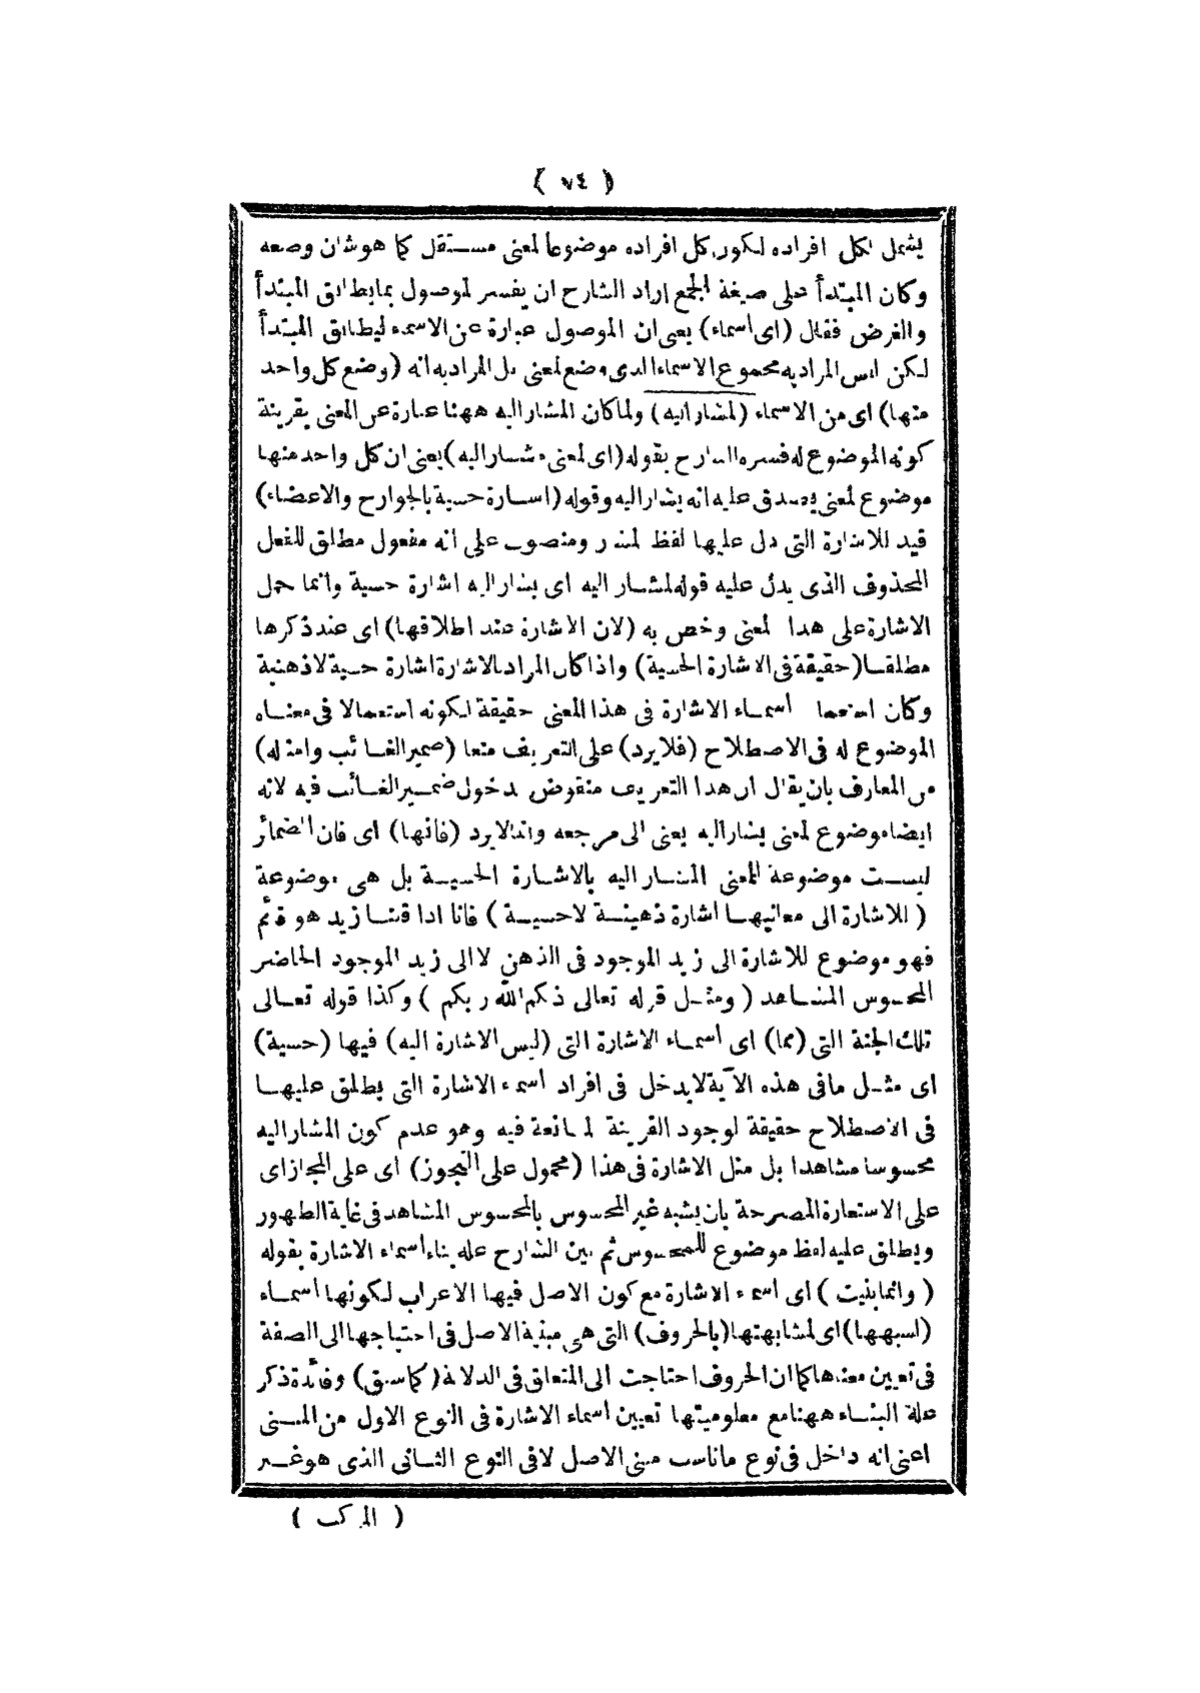 ( ٧٤ )
يشمل لكل افراده لكون كل افراده موضوعا لمعنى مستقل كما هو شان وضعه
وكان المبتدأ على صيغة الجمع اراد الشارح ان يفسر الموصول بما يطابق المبتدأ
والغرض فقال (اى اسماء) يعنى ان الموصول عبارة عن الاسماء ليطابق المبتدأ
لكن ليس المراد به مجموع الاسماء الذى وضع لمعنى بل المراد به انه (وضع كل واحد
منها) اى من الاسماء (لمشار اليه) ولما كان المشار اليه ههنا عبارة عن المعنى بقرينة
كونه الموضوع له فسره الشارح بقوله (اى لمعنى مشار اليه) يعنى ان كل واحد منها
موضوع لمعنى يصدق عليه انه يشار اليه وقوله (اشارة حسية بالجوارح والاعضاء)
قيد للاشارة التى دل عليها لفظ لمشار ومنصوب على انه مفعول مطلق للفعل
المحذوف الذى يدل عليه قوله لمشار اليه اى يشار اليه اشارة حسية وانما حمل
الاشارة على هذا المعنى وخص به (لان الاشارة عند اطلاقها) اى عند ذكرها
مطلقا (حقيقة فى الاشارة الحسية) واذا كان المراد بالاشارة اشارة حسية لا ذهنية
وكان استعمال اسماء الاشارة فى هذا المعنى حقيقة لكونه استعمالا فى معناه
الموضوع له فى الاصطلاح (فلا يرد) على التعريف منعا (ضمير الغائب وامثاله)
من المعارف بان يقال ان هذا التعريف منقوض بدخول ضمير الغائب فيه لانه
ايضا موضوع لمعنى يشار اليه يعنى الى مرجعه وانما لا يرد (فانها) اى فان الضمائر
ليست موضوعة للمعنى المشار اليه بالاشارة الحسية بل هى موضوعة
( للاشارة الى معانيها اشارة ذهنية لا حسية ) فانا اذا قلنا زيد هو قائم
فهو موضوع للاشارة الى زيد الموجود فى الذهن لا الى زيد الموجود الحاضر
المحسوس المشاهد ( ومثل قوله تعالى ذلكم الله ربكم ) وكذا قوله تعالى
تلك الجنة التى (مما) اى اسماء الاشارة التى (ليس الاشارة اليه) فيها (حسية)
اى مثل ما فى هذه الآية لا يدخل فى افراد اسماء الاشارة التى يطلق عليها
فى الاصطلاح حقيقة لوجود القرينة المانعة فيه وهو عدم كون المشار اليه
محسوسا مشاهدا بل مثل الاشارة فى هذا (محمول على التجوز) اى على المجاز اى
على الاستعارة المصرحة بان يشبه غير المحسوس بالمحسوس المشاهد فى غاية الظهور
ويطلق عليه لفظ موضوع للمحسوس ثم بين الشارح علة بناء اسماء الاشارة بقوله
( وانما بنيت ) اى اسماء الاشارة مع كون الاصل فيها الاعراب لكونها اسماء
(لشبهها) اى لمشابهتها (بالحروف) التى هى مبنية الاصل فى احتياجها الى الصفة
فى تعيين معناها كما ان الحروف احتاجت الى المتعلق فى الدلالة (كما سبق) وفائدة ذكر
علة البناء ههنا مع معلوميتها تعيين اسماء الاشارة فى النوع الاول من المبنى
اعنى انه داخل فى نوع ما ناسب مبنى الاصل لا فى النوع الثانى الذى هو غير
( المركب )